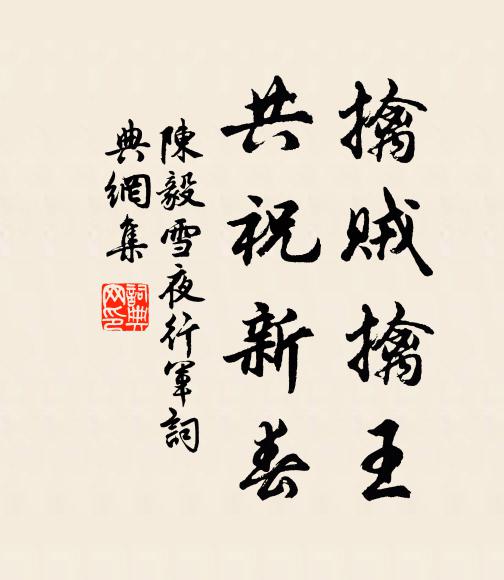 擒賊擒王
共祝新春
陳毅雪夜行軍詞
典網集
詞典
网印